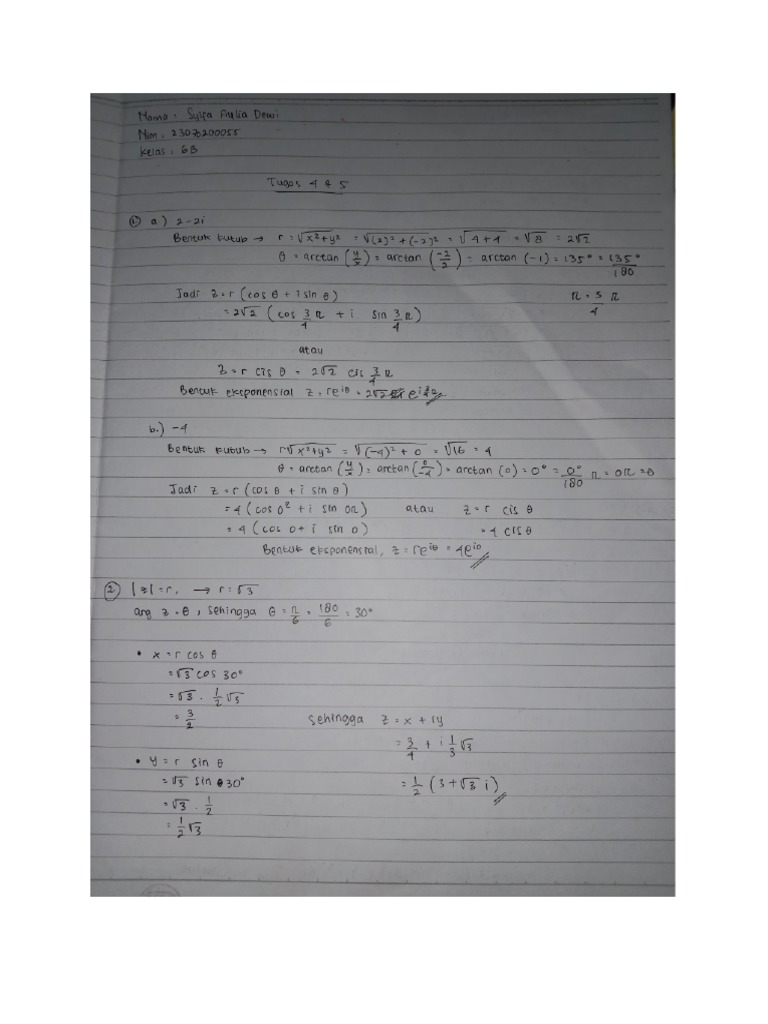 Nama : Sylfa Aulia Dewi
Nim : 23076200055
Kelas : 6B
Tugas 4 & 5
1) a.) 2-2i
Bentuk kutub → r = √x²+y² = √(2)²+(-2)² = √4+4 = √8 = 2√2
θ = arctan (y/x) = arctan (-2/2) = arctan (-1) = 135° = 135°/180
π = 3/4 π
Jadi z = r (cos θ + i sin θ)
= 2√2 (cos 3/4 π + i sin 3/4 π)
atau
z = r cis θ = 2√2 cis 3/4 π
Bentuk eksponensial z = re^iθ = 2√2 e^i 3/4 π
b.) -4
Bentuk kutub → r √x²+y² = √(-4)² + 0 = √16 = 4
θ = arctan (y/x) = arctan (0/-4) = arctan (0) = 0° = 0°/180 π = 0π = 0
Jadi z = r (cos θ + i sin θ)
= 4 (cos 0π + i sin 0π) atau z = r cis θ
= 4 (cos 0 + i sin 0) = 4 cis θ
Bentuk eksponensial, z = re^iθ = 4e^i0
2) |z| = r, → r = √3
arg z = θ, sehingga θ = π/6 = 180/6 = 30°
• x = r cos θ
= √3 cos 30°
= √3 . 1/2 √3
= 3/2
sehingga z = x + iy
= 3/4 + i 1/3 √3
= 1/2 (3+√3 i)
• y = r sin θ
= √3 sin 30°
= √3 . 1/2
= 1/2 √3